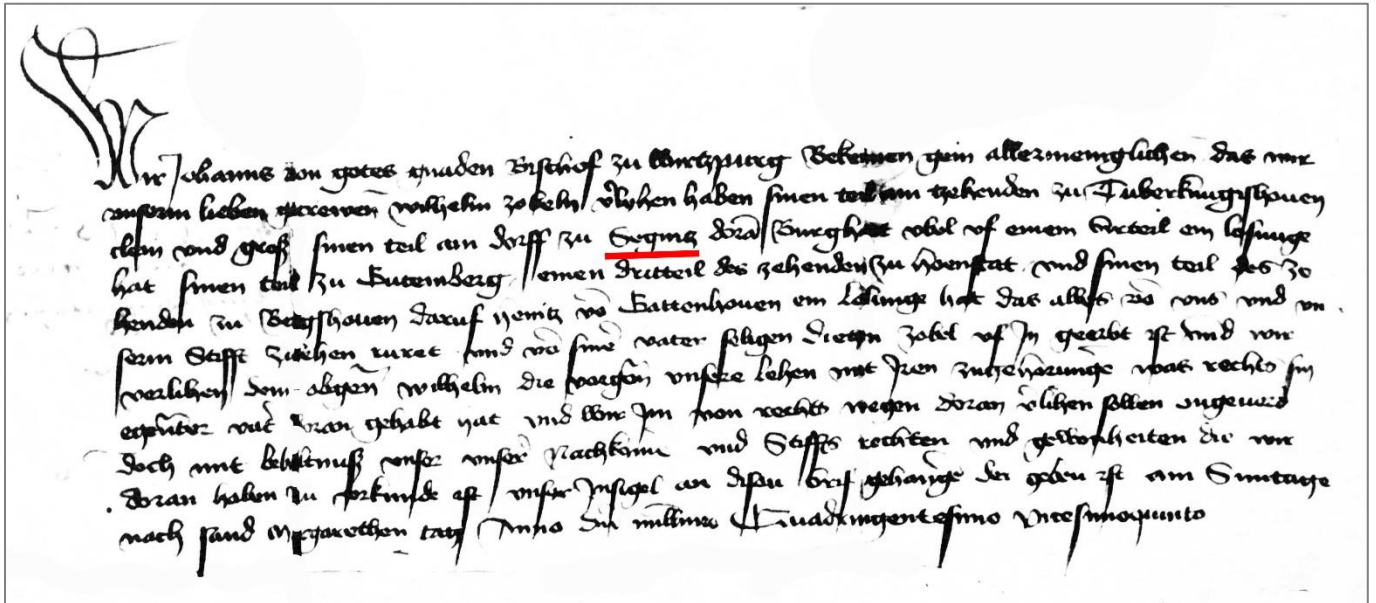 Wir Johanns von gotes gnaden Bischof zu Wirtzpurg Bekennen gein allermeniglichen das wir
unserm lieben getrewen wilhelm zobeln v'lyhen haben sinen teil am zehenden zu Tuberkungshouen
clein vnd groß sinen teil am dorff zu Segnitz doran Burghart vbel vf einem virteil ein losunge
hat sinen teil zu Gutemberg einen dritteil des zehenden zu hoenstat vnd sinen teil des ze
henden zu daruf heintz vō Gattenhouen ein losunge hat das alles vō vns vnd vn
serm Stifft zulehen ruret vnd vō sinē vater seligen dietzen zobel vf In geerbt ist vnd wir
verlihen dem obgen̄ wilhelm die vorgen̄ vnsere lehen mit Iren zugehorunge was rechts sin
vat' doran gehabt hat vnd wir Im von rechts wegen doran v'lihen sollen ongeuerd
doch mit beheltnuß vnser vnser Nachkome vnd Stiffts rechten vnd gewonheiten die wir
doran haben zu vrkunde ist vnser Insigel an disen brif gehangē der geben ist am Suntage
nach sand Margarethen tag Anno dn̄i millimo Quadringentesimo vicesimoquinto